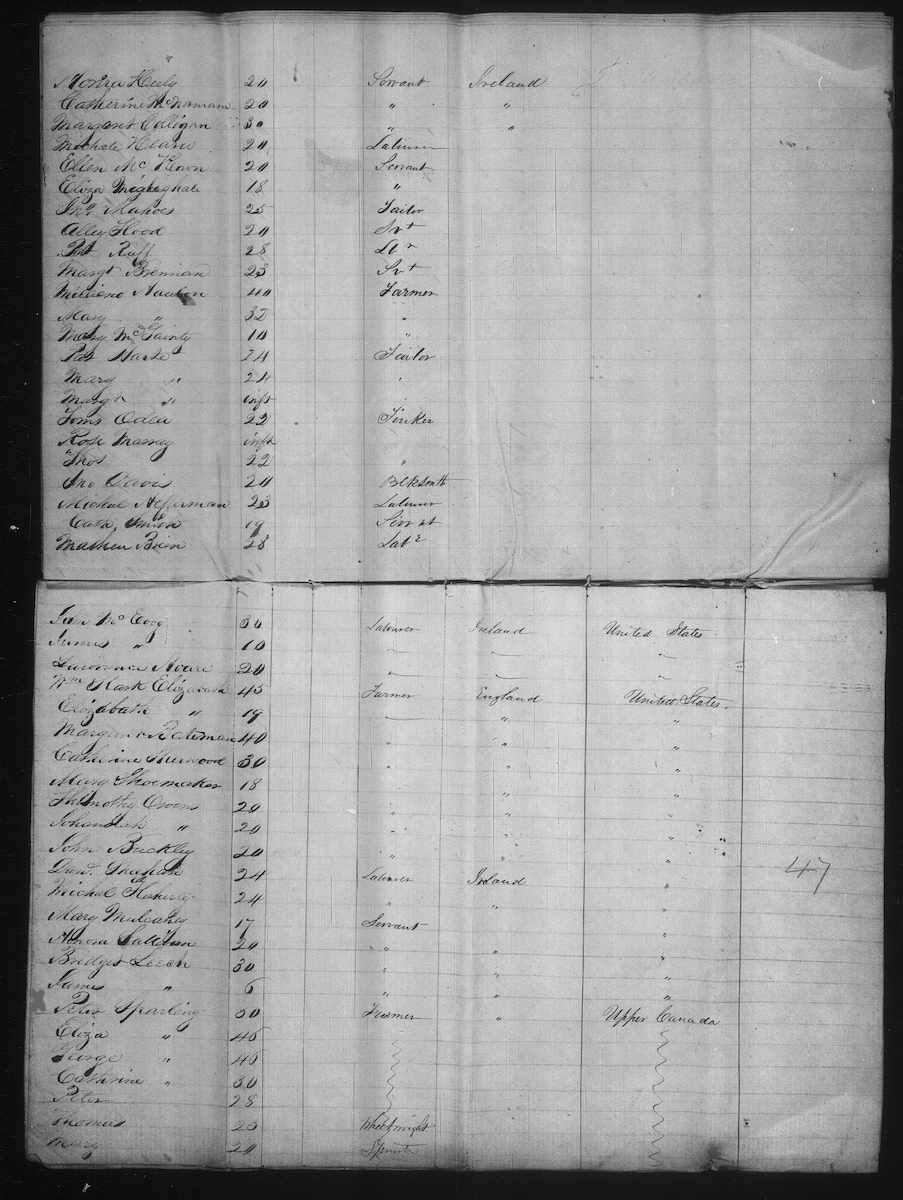 "
Honra Heely 20 Servant Ireland
Catherine McNamara 20 " "
Margaret Colligan 30 " "
Michale 20 Labourer
Ellen Mc Kown 20 Servant
Eliza 18 "
Jno Mahoes 25 Tailor
Alley Hood 20 Svt
Pat Ruff 28 Lbr
Margt Brennan 23 Svt
40 Farmer
Mary " 32 "
Mary McGinty 10 "
Pat 24 Tailor
Mary " 24 "
Margt " inft
Toms Odea 22 Tinker
Rose inft
Thos 22 "
Jno Davis 20 Blksmith
Michal Hefferman 23 Labourer
Cath 19 Servt
Mathew Brien 28 Labr
McCovy 30 Labourer Ireland United States
James " 10 " " "
Lawrence Moare 20 " "
Wm Elizabath 45 Farmer England United States
Elizabath " 19 " " "
Margaret Bateman 40 " " "
Catherine 30 " " "
Mary Shoemaker 18 " " "
Thimothy Owens 20 " " "
Johanah " 20 " " "
John Buckley 20 " " "
24 Labourer Ireland " 47
Michal Flaherty 24 " " "
Mary Mulcahy 17 Servant "
20 " " "
Bridget Leech 30 " " "
James " 6 " " "
Peter Sparling 50 Farmer " Upper Canada
Eliza " 45
George " 45
Catherine " 30
Peter 28
Thomas 25 Wheelwright
Mary 20 Spinster